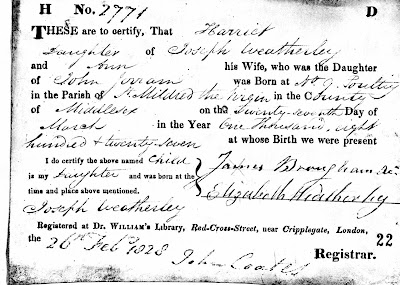 H No. 2771 D
THESE are to certify, That Harriet
Daughter of Joseph Weatherley
and Ann his Wife, who was the Daughter
of John was Born at No 9
in the Parish of St Mildred the Virgin in the County
of Middlesex on the Twenty-seventh Day of
March in the Year One thousand eight
hundred & twenty-seven at whose Birth we were present
I do certify the above named Child
is my Daughter and was born at the
time and place above mentioned.
James Brougham
Elizabeth Weatherley
Joseph Weatherley
Registered at Dr. WILLIAM's Library, Red-Cross-Street, near Cripplegate, London,
the 26th Feby 1828 22
John Coates Registrar.